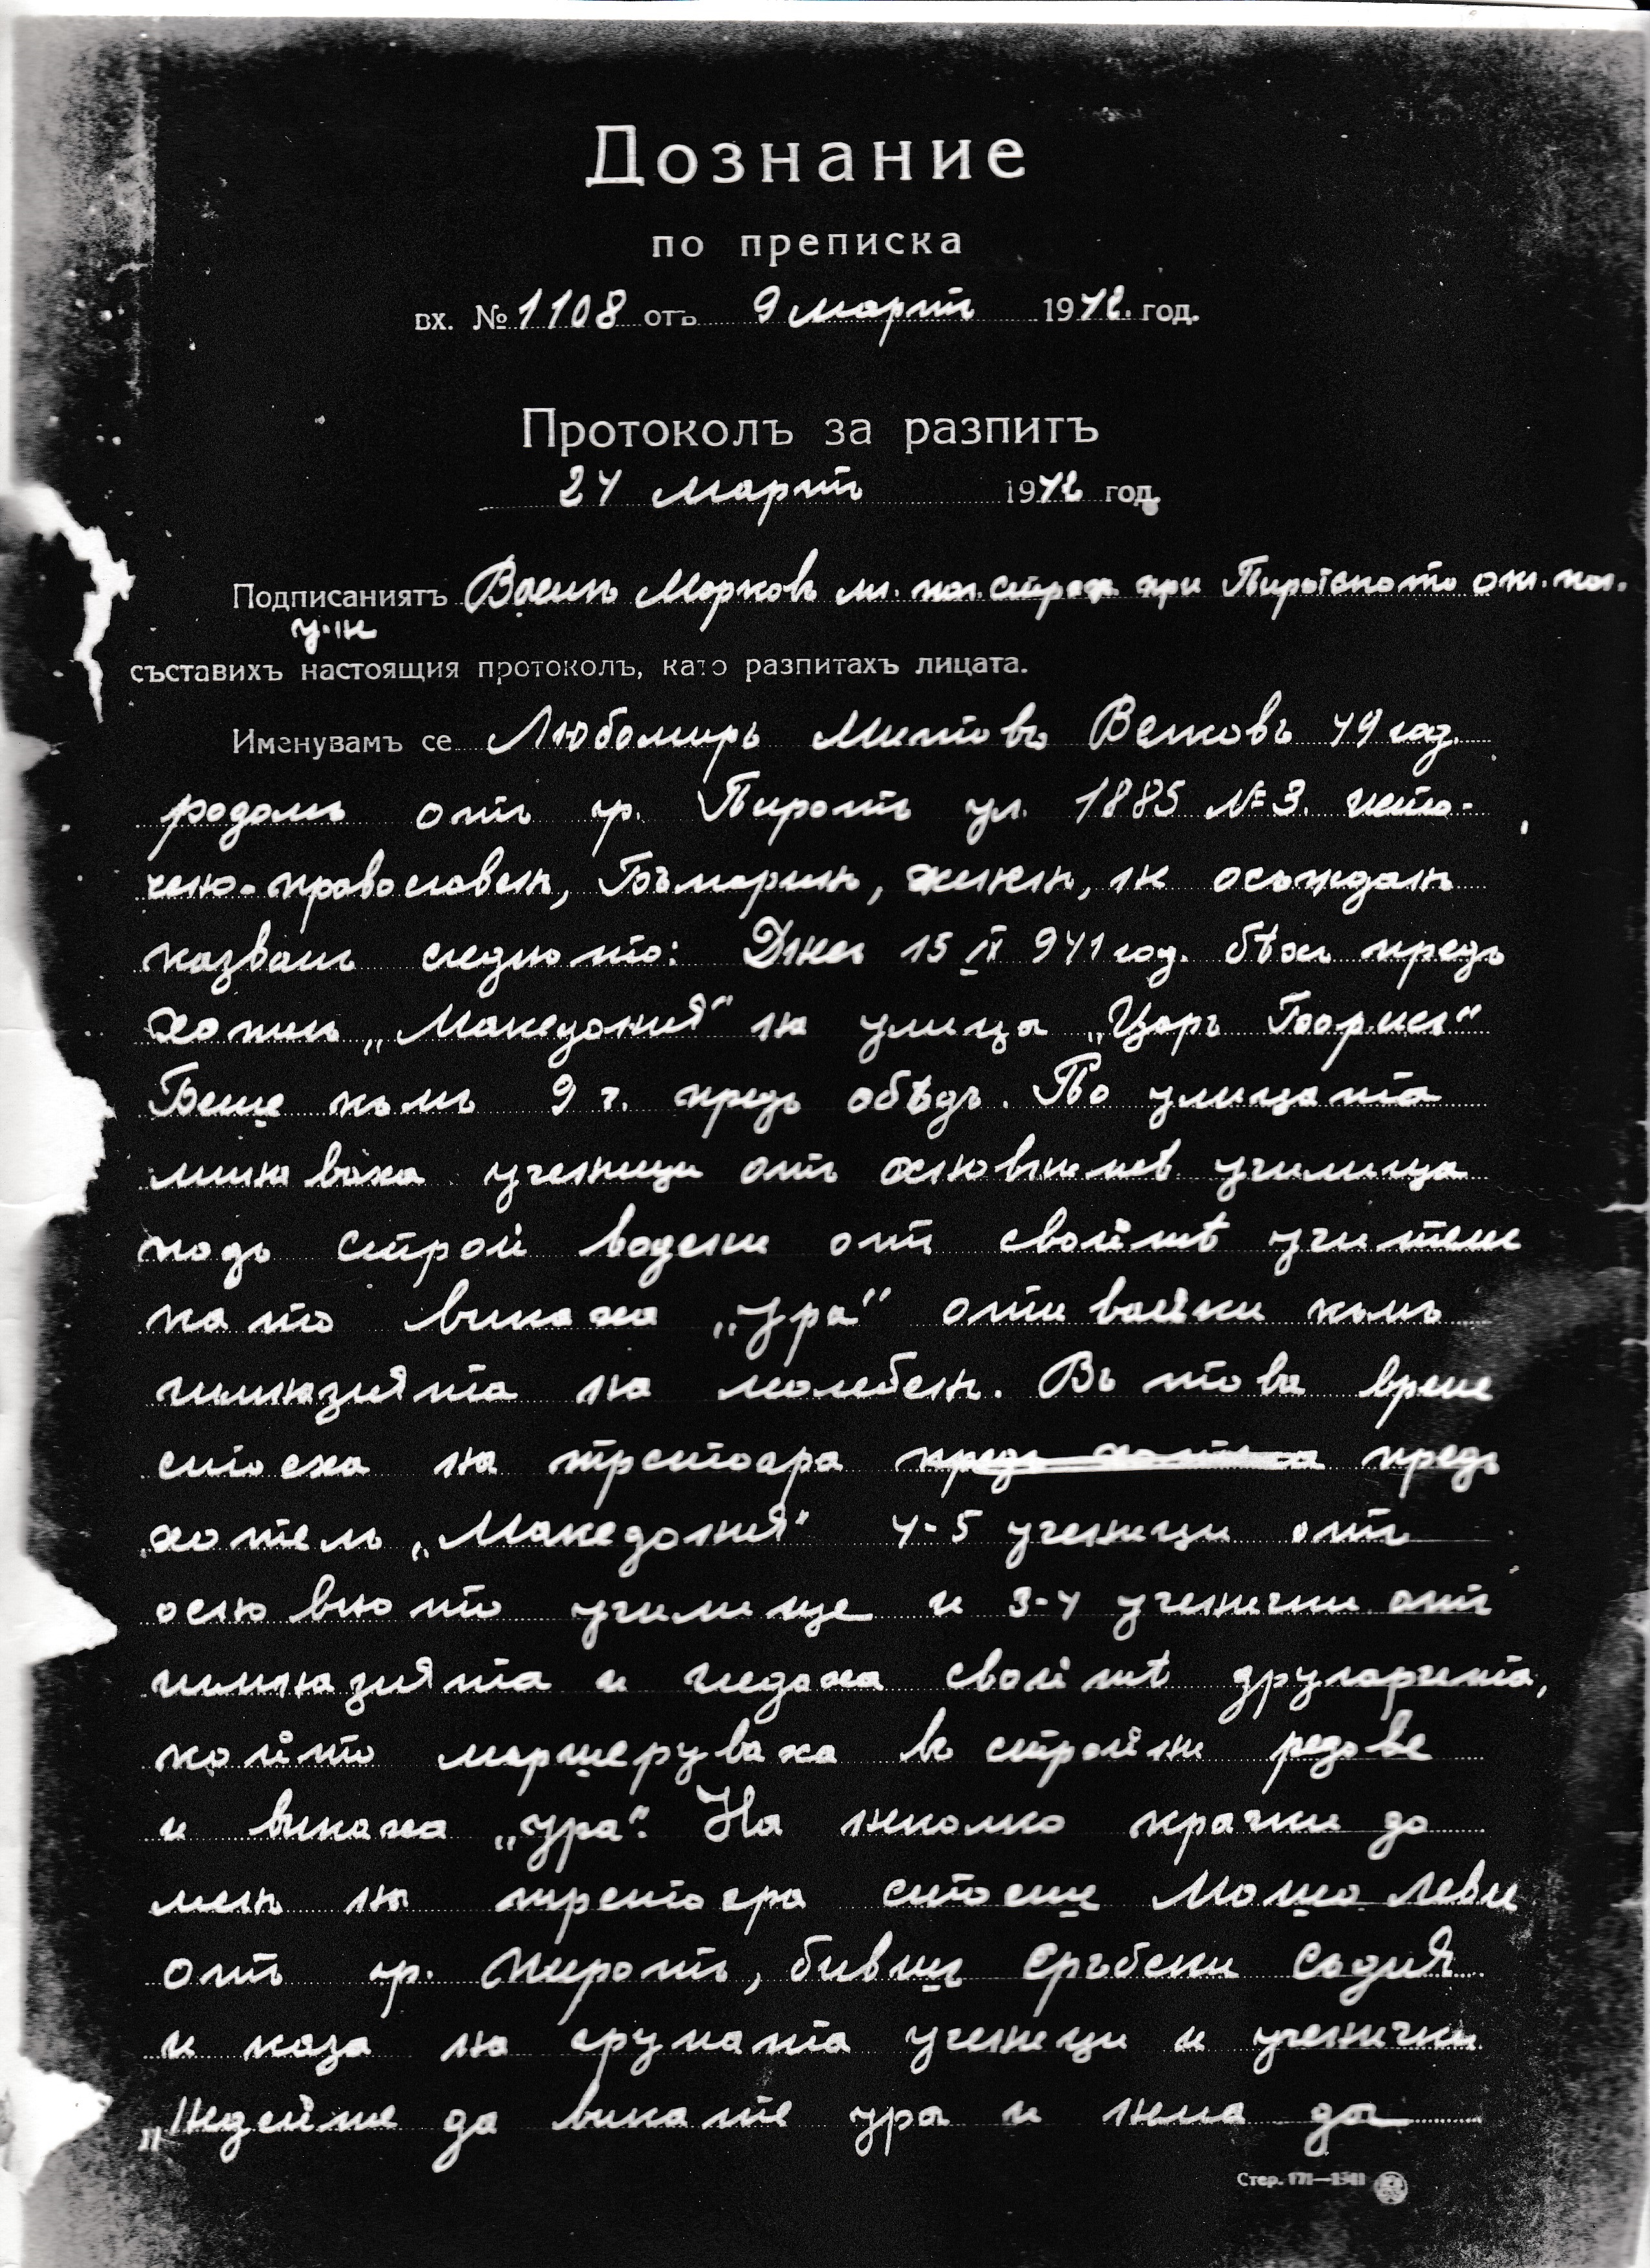 Дознание
по преписка
вх. № 1108 отъ 9 мартъ 1942. год.
Протоколъ за разпитъ
24 мартъ 1942 год.
Подписаниятъ Василъ Марковъ мл. пол. стражар при Пиротското око. пол.
у-ие
съставихъ настоящия протоколъ, като разпитахъ лицата.
Именувамъ се Любомиръ Митовъ Велковъ 49 год.
родомъ отъ гр. Пиротъ ул. 1885 № 3. исто-
чено-православен, Българинъ, жененъ, не осъжданъ
казвамъ следното: Днес 15 II 941 год. бѣхъ предъ
хотелъ „Македония" на улица „Царъ Борисъ"
Беше къмъ 9 г. предъ обѣдъ. По улицата
минаваха ученици отъ основните училища
подъ строй водени отъ своитѣ учители
като викаха „ура" отивайки къмъ
гимназията на молебенъ. Въ това време
стоеха на тротоара предъ хотела предъ
хотелъ „Македония" 4-5 ученици отъ
основното училище и 3-4 ученички отъ
гимназията и гледаха своитѣ другарчета,
който маршеруваха в стройни редове
и викаха „ура". На неколко крачки до
мен на тротоара стоеше Мошо Леви
отъ гр. Пиротъ, бивши сръбски съдия
и каза на групата ученици и ученички
„Недейте да викате ура и нема да
Стер. 171—1941